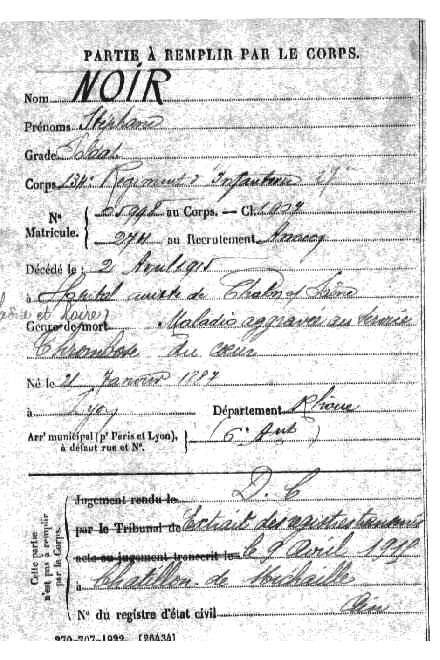 PARTIE À REMPLIR PAR LE CORPS.
Nom NOIR
Prénoms Stéphane
Grade
Corps 134e Régiment d'Infanterie
N° Matricule. { au Corps. — Cl. 1907
274 au Recrutement Annecy
Décédé le 2 Avril 1915
à Hôpital mixte de Chalon s/ Saône
(Saône et Loire)
Genre de mort Maladie aggravée au service
Thrombose du cœur
Né le 21 Janvier 1887
à Lyon Département Rhône
Arrt municipal (pr Paris et Lyon), à défaut rue et N°. } (6e Art)
Cette partie n'est pas à remplir par le Corps.
Jugement rendu le D. C
par le Tribunal de Extrait des registres transmis
acte ou jugement transcrit le le 9 Avril
à Chatillon de Michaille
Ain
N° du registre d'état civil
270-707-1922. [26434]